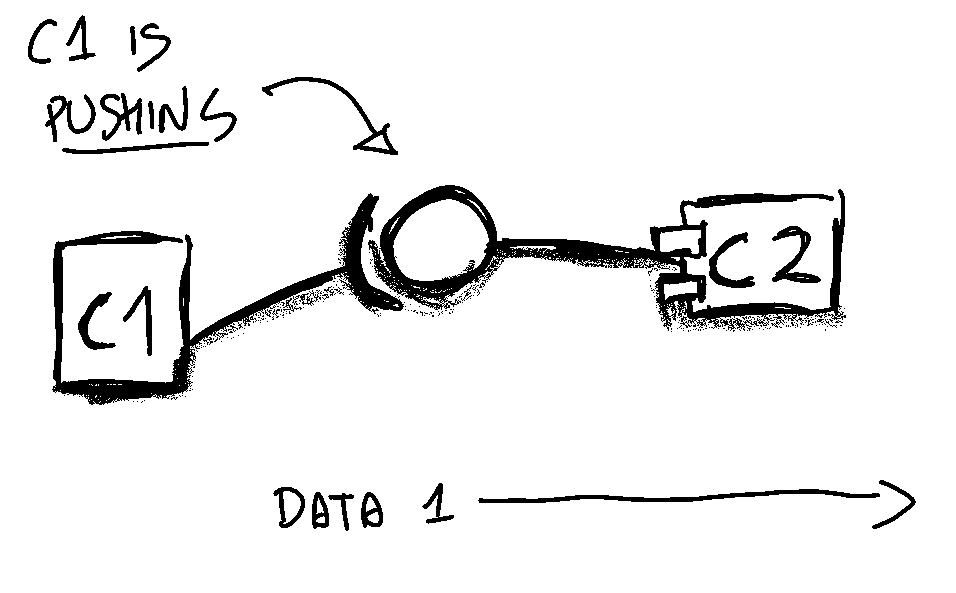 C1 IS
PUSHING
C1
C2
DATA 1